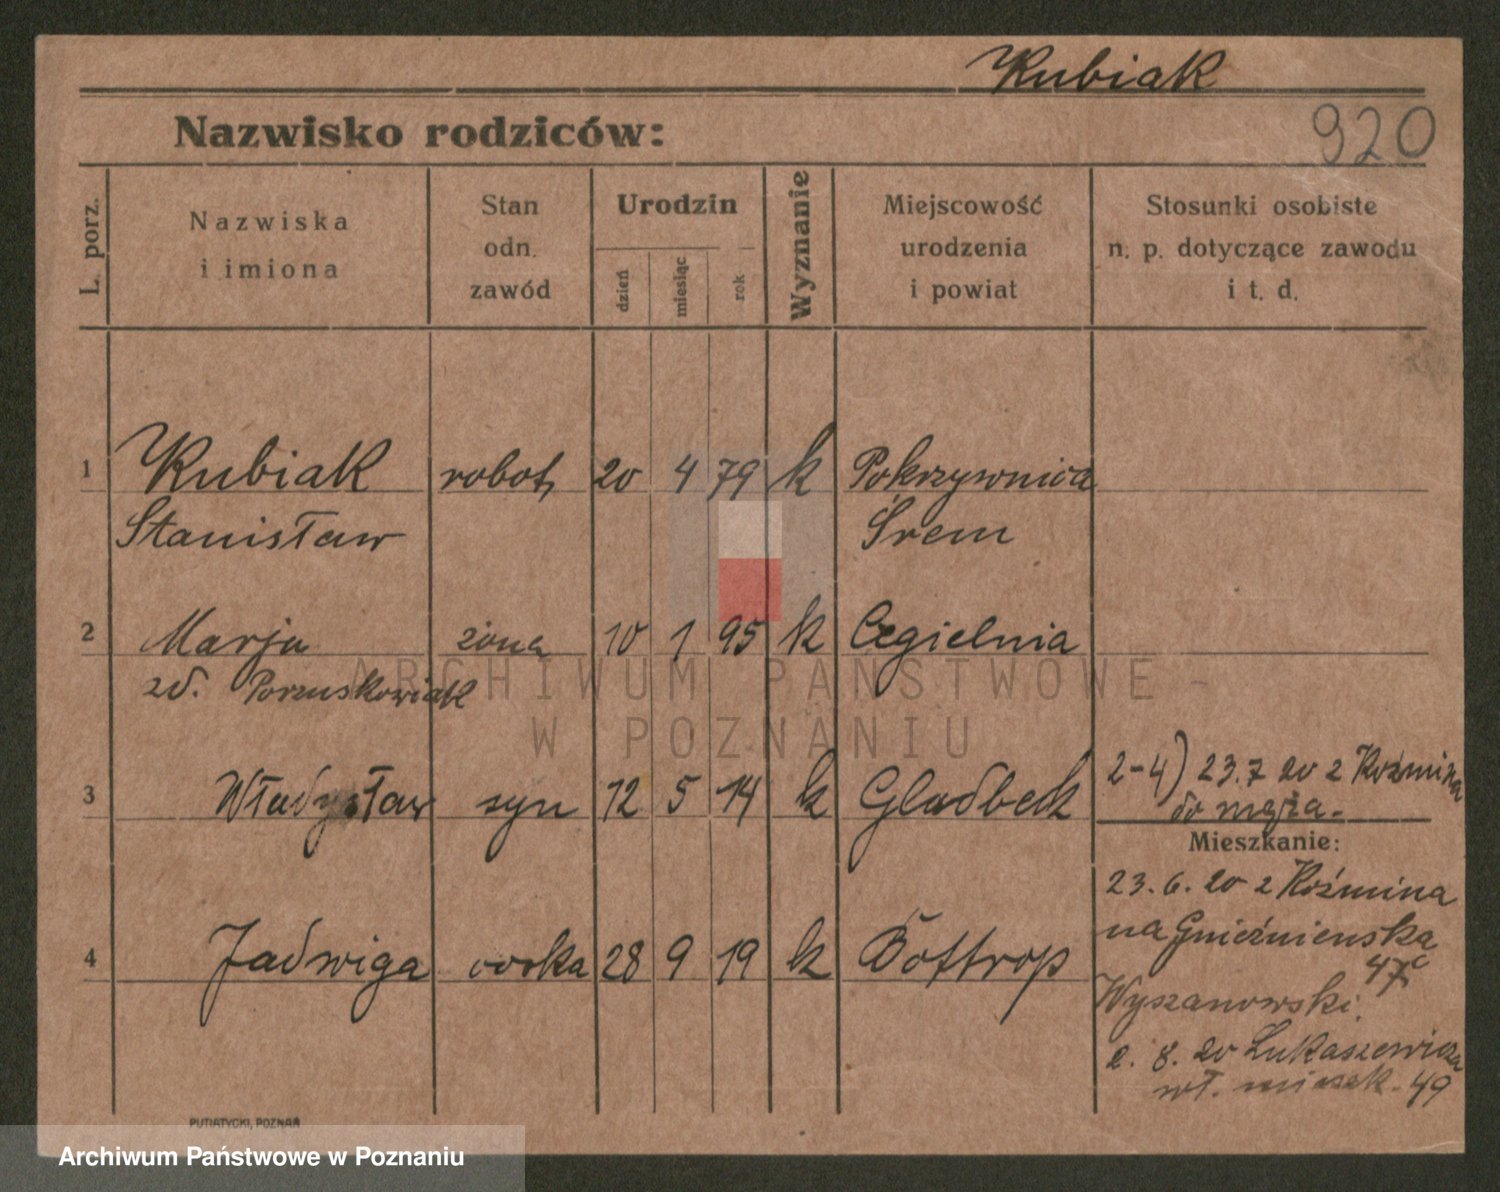 Kubiak
Nazwisko rodziców:
920
L. porz.
Nazwiska
i imiona
Stan
odn.
zawód
Urodzin
dzień
miesiąc
rok
Wyznanie
Miejscowość
urodzenia
i powiat
Stosunki osobiste
n. p. dotyczące zawodu
i t. d.
1 Kubiak robot, 20 4 79 k Pokrzywnica
Stanisław Śrem
2 Marja żona 10 1 95 k Cegielnia
zd.
3 Władysław syn 12 5 14 k Gladbeck
2-4) 23.7 20 z Koźmina
do męża.
Mieszkanie:
23.6.20 z Koźmina
na Gnieźnieńska
47c
4 Jadwiga córka 28 9 19 k Bottrop
Wyszanowski.
2. 8. 20 Łukaszewicza
wł. mieszk. 49
PUTIATYCKI, POZNAŃ
ARCHIWUM PAŃSTWOWE
W POZNANIU
Archiwum Państwowe w Poznaniu